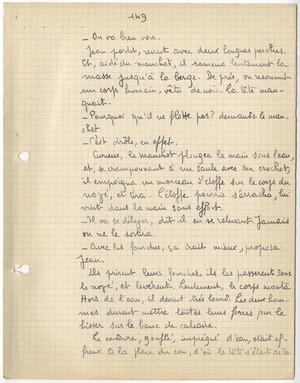 149
_ On va bien voir.
Jean partit, revint avec deux longues perches.
Et, aidé du manchot, il ramena lentement la
masse jusqu'à la berge. De près, on reconnut
un corps humain, vêtu de noir. La tête man-
quait.
_ Pourquoi qu'il ne flotte pas? demanda le man-
chot
_ C'est drôle, en effet.
Curieux, le manchot plongea la main sous l'eau,
et, se cramponnant à un saule avec son crochet,
il empoigna un morceau d'étoffe sur le corps du
noyé, et tira. L'étoffe pourrie s'arracha, lui
vint dans la main sans effort.
_ Il va se déliger, dit-il en se relevant. Jamais
on ne le sortira.
_ Avec les fourches, ça irait mieux, proposa
Jean.
Ils prirent leurs fourches, ils les passèrent sous
le noyé, et levèrent. Lentement, le corps monta
Hors de l'eau, il devint très lourd. Les deux hom-
mes durent mettre toutes leurs forces pour le
hisser sur le banc de calcaire.
Le cadavre, gonflé, imprégné d'eau, était af-
freux. A la place du cou, d'où la tête s'était déta